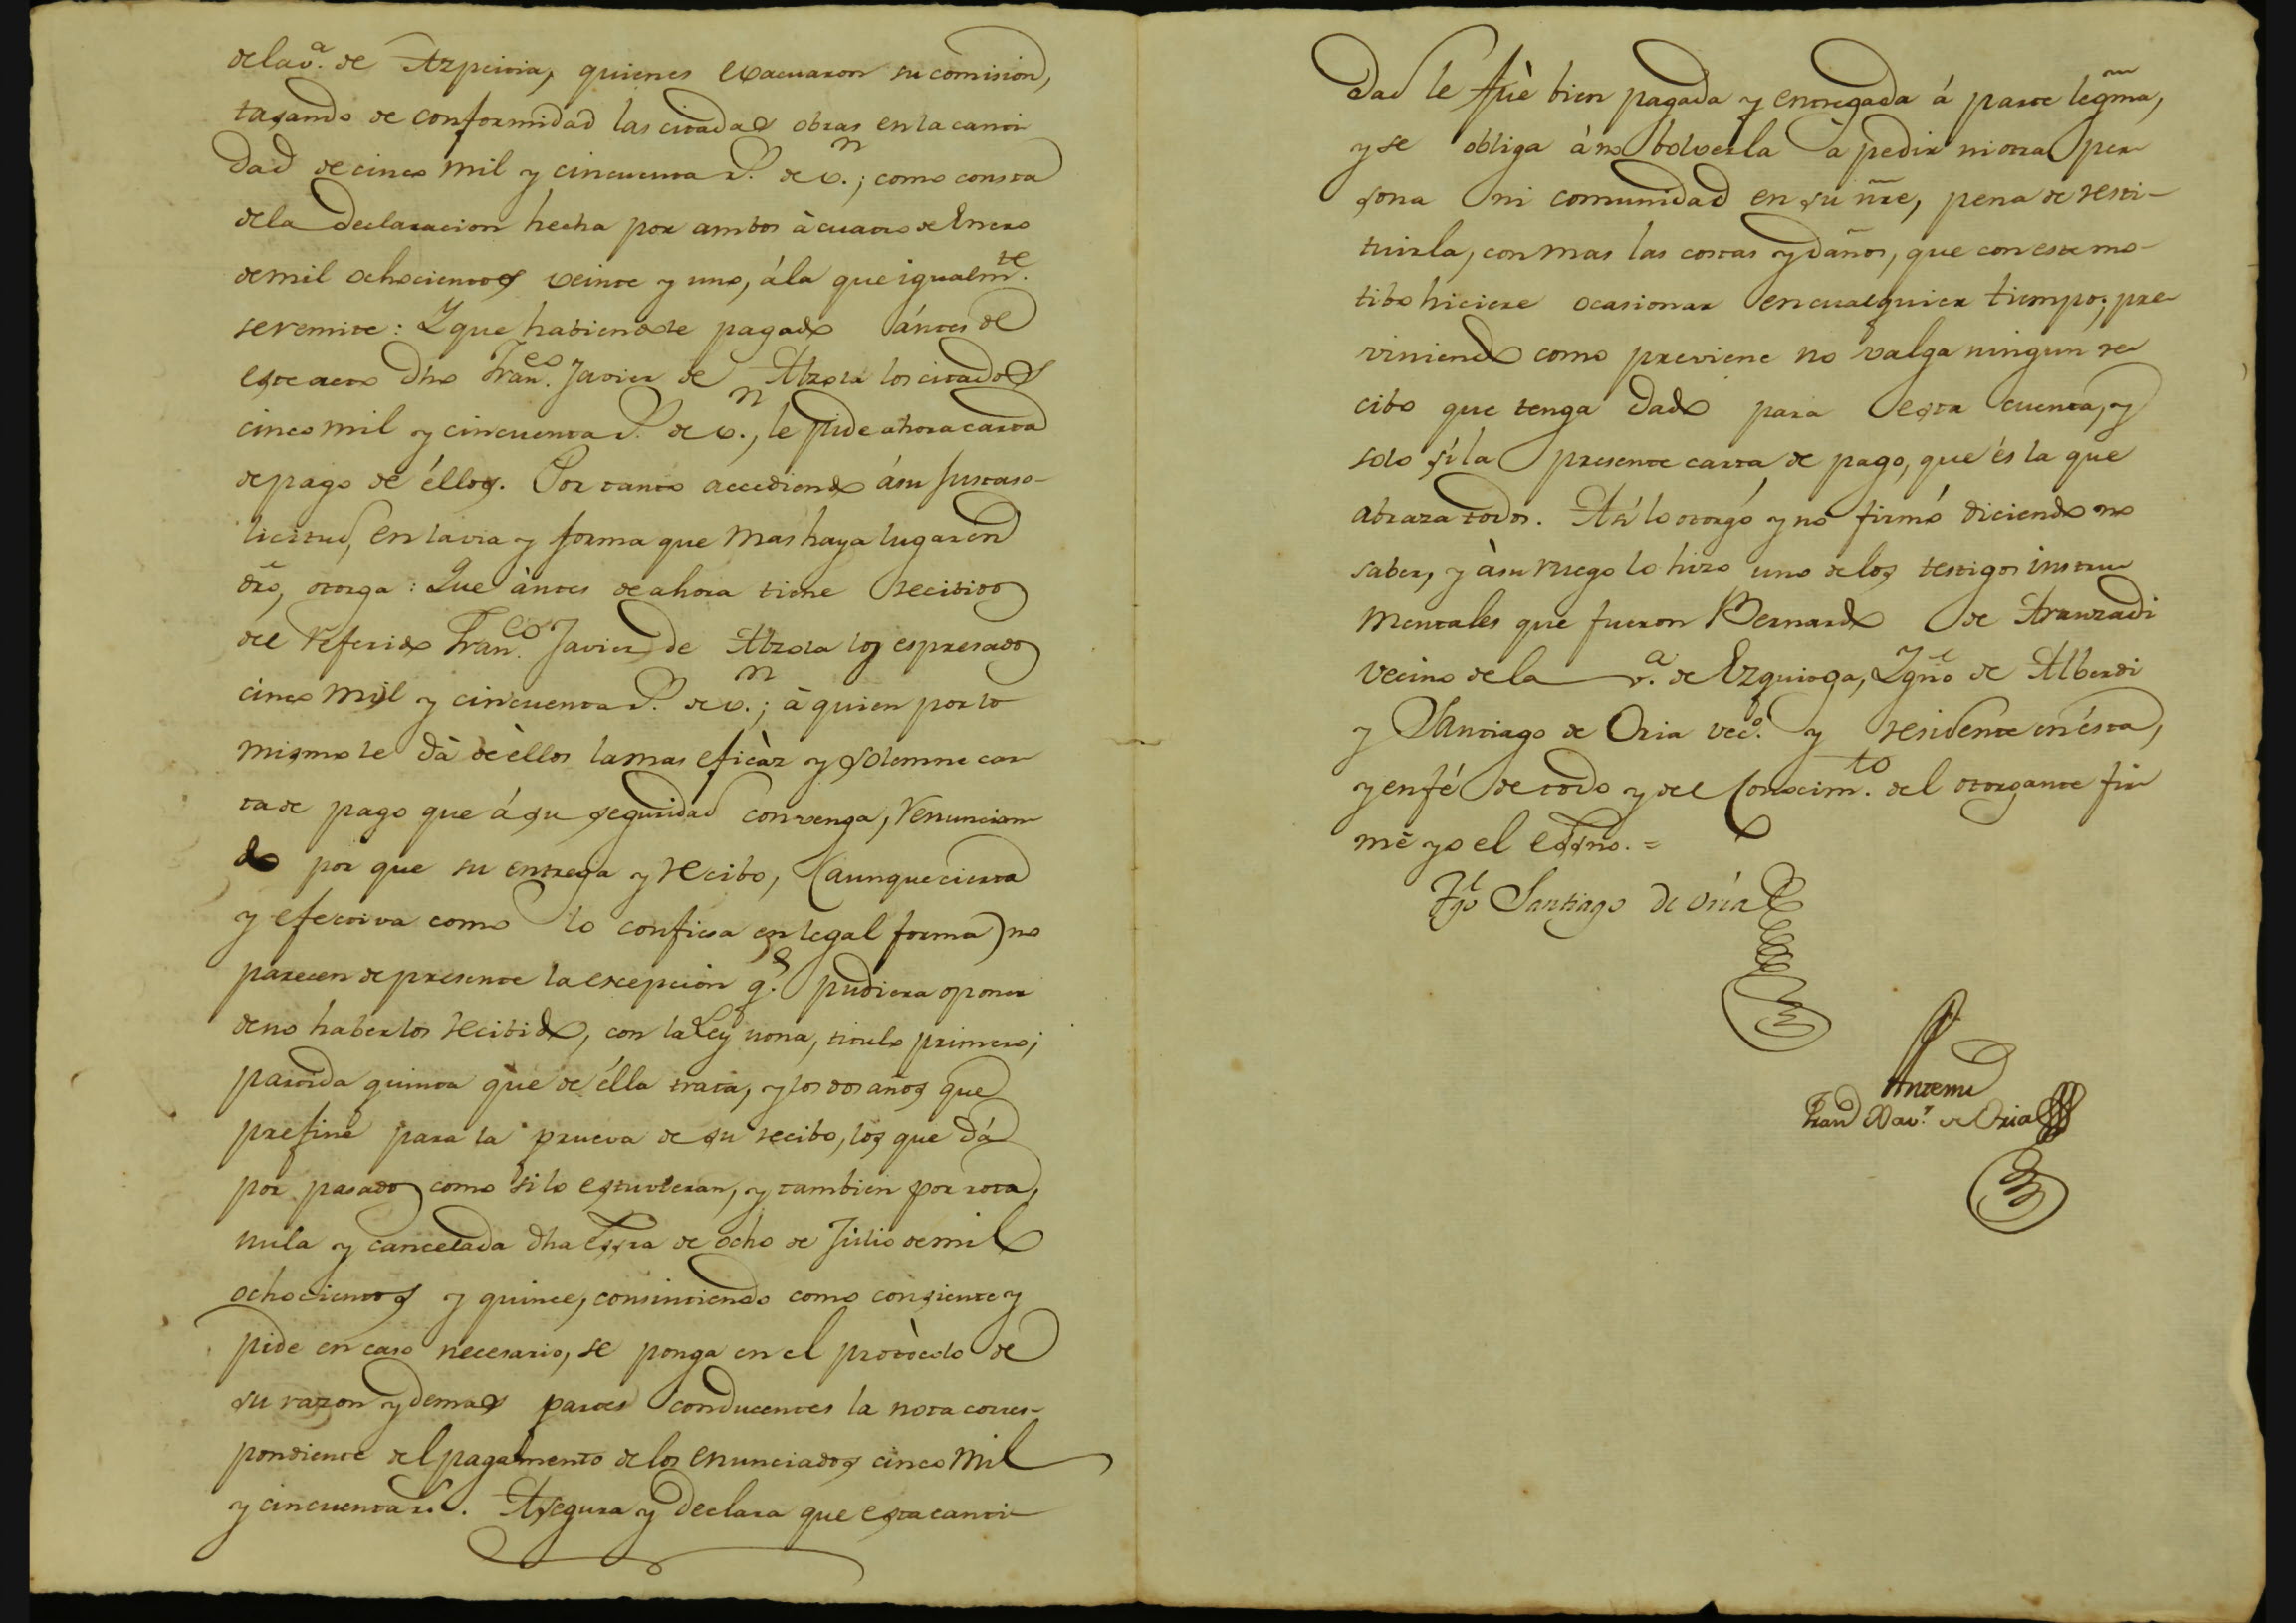 dela v.ª de Azpeitia, quienes evacuaron su comision,
tasando de conformidad las citadas obras en la canti
dad de cinco mil y cincuenta r.s de v.n; como consta
dela declaracion hecha por ambos à cuatro de Enero
de mil ochocientos veinte y uno, ála que igualm.te
se remite: Y que habiendole pagado ántes de
este acto dho Fran.co Javier de Alzola los citados
cinco mil y cincuenta r.s de v.n, le pide ahora carta
de pago de éllos. Por tanto accediendo ásu justa so-
licitud, en la via y forma que mas haya lugar en
dro, otorga: Que àntes de ahora tiene recibidos
del referido Fran.co Javier de Alzola los espresados
cinco mil y cincuenta r.s de v.n; à quien por lo
mismo le dà de èllos la mas eficàz y solemne car
ta de pago que á su seguridad convenga, renuncian
do por que su entrega y recibo, (aunque cierta
y efectiva como lo confiesa en legal forma) no
parecen de presente la excepcion q.e pudiera oponer
de no haberlos recibido, con la Ley nona, titulo primero,
partida quinta que de élla trata, y los dos años que
prefine para la prueva de su recibo, los que dá
por pasados como si lo estuvieran, y tambien por rota,
nula y cancelada dha essra de ocho de Julio de mil
ochocientos y quince, consintiendo como consiente y
pide en caso necesario, se ponga en el protòcolo de
su razon y demas partes conducentes la nota corres-
pondiente del pagamento de los enunciados cinco mil
y cincuenta r.s. Asegura y declara que esta canti-
dad le fuè bien pagada y entregada á parte legma,
y se obliga áno bolverla à pedir ni otra per
sona ni comunidad en su nre, pena de resti-
tuirla, con mas las costas y daños, que con este mo-
tibo hiciere ocasionar en cualquier tiempo; pre
viniendo como previene no valga ningun re
cibo que tenga dado para esta cuenta, y
solo sí la presente carta de pago, que és la que
abraza todos. Así lo otorgó y no firmó diciendo no
saber, y àsu ruego lo hizo uno de los testigos instru
mentales que fueron Bernardo de Aranzadi
vecino de la v.ª de Ezquioga, Ygño de Alberdi
y Santiago de Oria vec.º y residente en ésta,
y en fé de todo y del Conocim.to del otorgante fir
mé yo el essno. =
Tgo Santiago de Oria
Antemi
Fran.co Xav.r de Oria